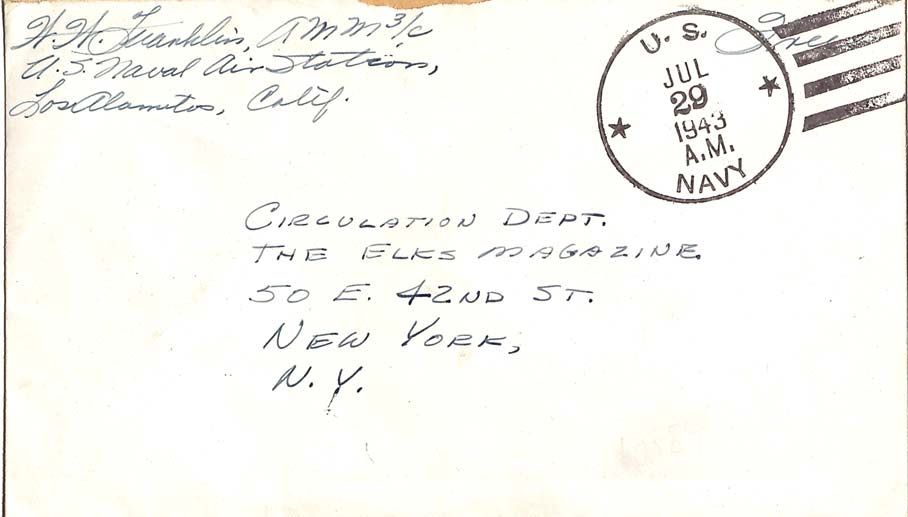 W. W. Franklin, AMM 3/c
U.S. Naval Air Station,
Los Alamitos, Calif.
Free
U. S.
JUL
29
1943
A.M.
NAVY
CIRCULATION DEPT.
THE ELKS MAGAZINE.
50 E. 42ND ST.
NEW YORK,
N. Y.